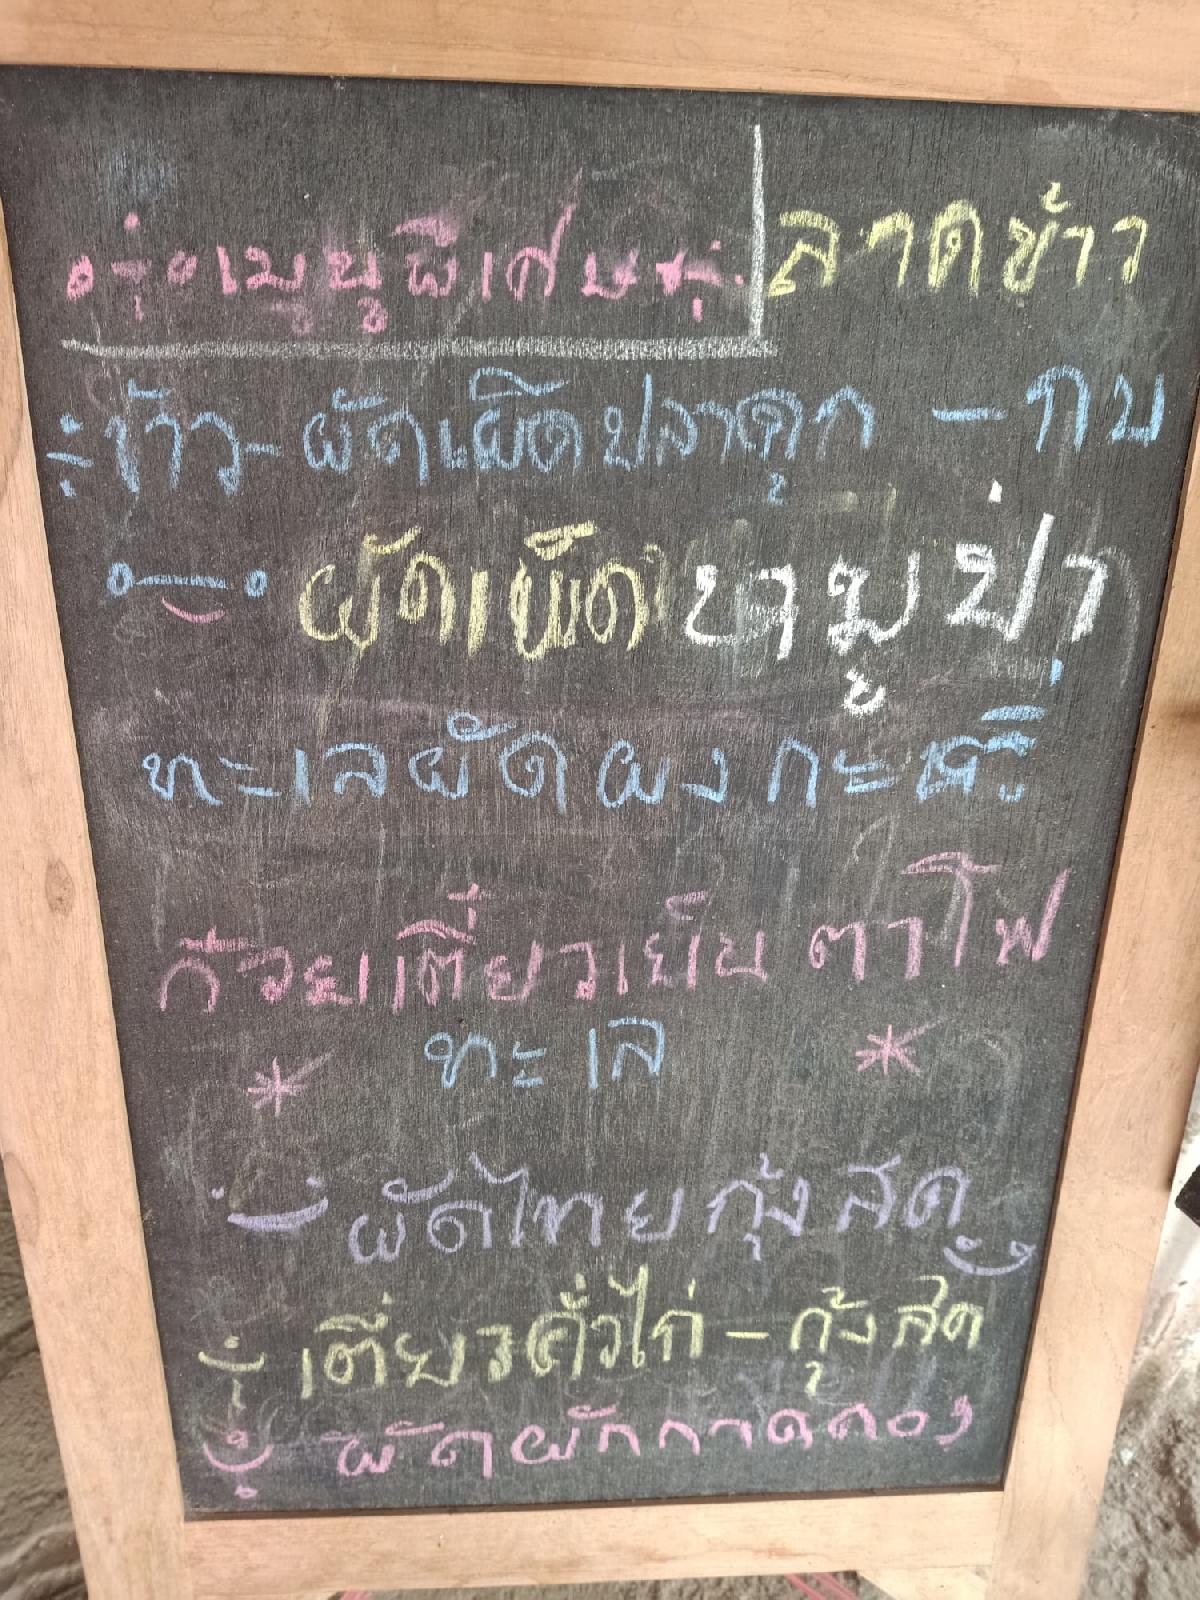 เมนูพิเศษ ลาดข้าว
ข้าว-ผัดเผ็ดปลาดุก - กบ
ผัดเผ็ดหามูป่า
ทะเลผัดผงกะหรี่
ก๋วยเตี๋ยวเย็นตาโฟ
ทะเล
ผัดไทยกุ้งสด
เตี๋ยวคั่วไก่ - กุ้งสด
ผัดผักกาดดอง